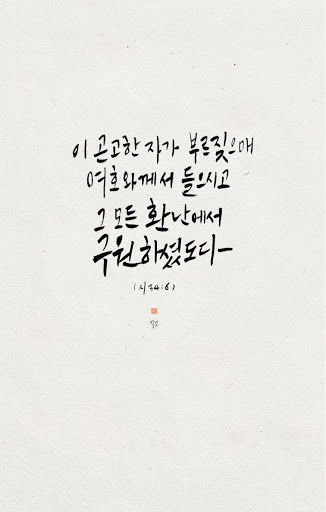 이 곤고한 자가 부르짖으매
여호와께서 들으시고
그 모든 환난에서
구원하셨도다-
(시34:6)